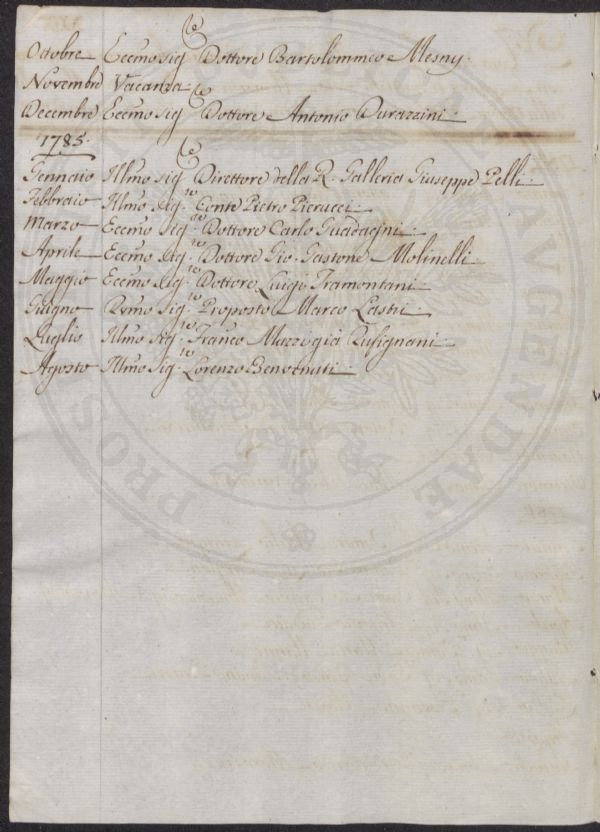 Octobre Eccmo Sig.re Dottore Bartolommeo Mesny.
Novembre Vacanza
Decembre Eccmo Sig.re Dottore Antonio Durazzini
1785.
Gennaio Illmo Sig.re Direttore della R. Galleria Giuseppe Pelli
Febbraio Illmo Sig.re Conte Pietro Pierucci
Marzo Eccmo Sig.re Dottore Carlo Guadagni
Aprile Eccmo Sig.re Dottore Gio. Gastone Molinelli
Maggio Eccmo Sig.re Dottore Luigi Tramontani
Giugno Rvmo Sig.re Proposto Marco Lastri
Luglio Illmo Sig.re Franco Mazzi già Rusignani
Agosto Illmo Sig.re Lorenzo Benvenuti